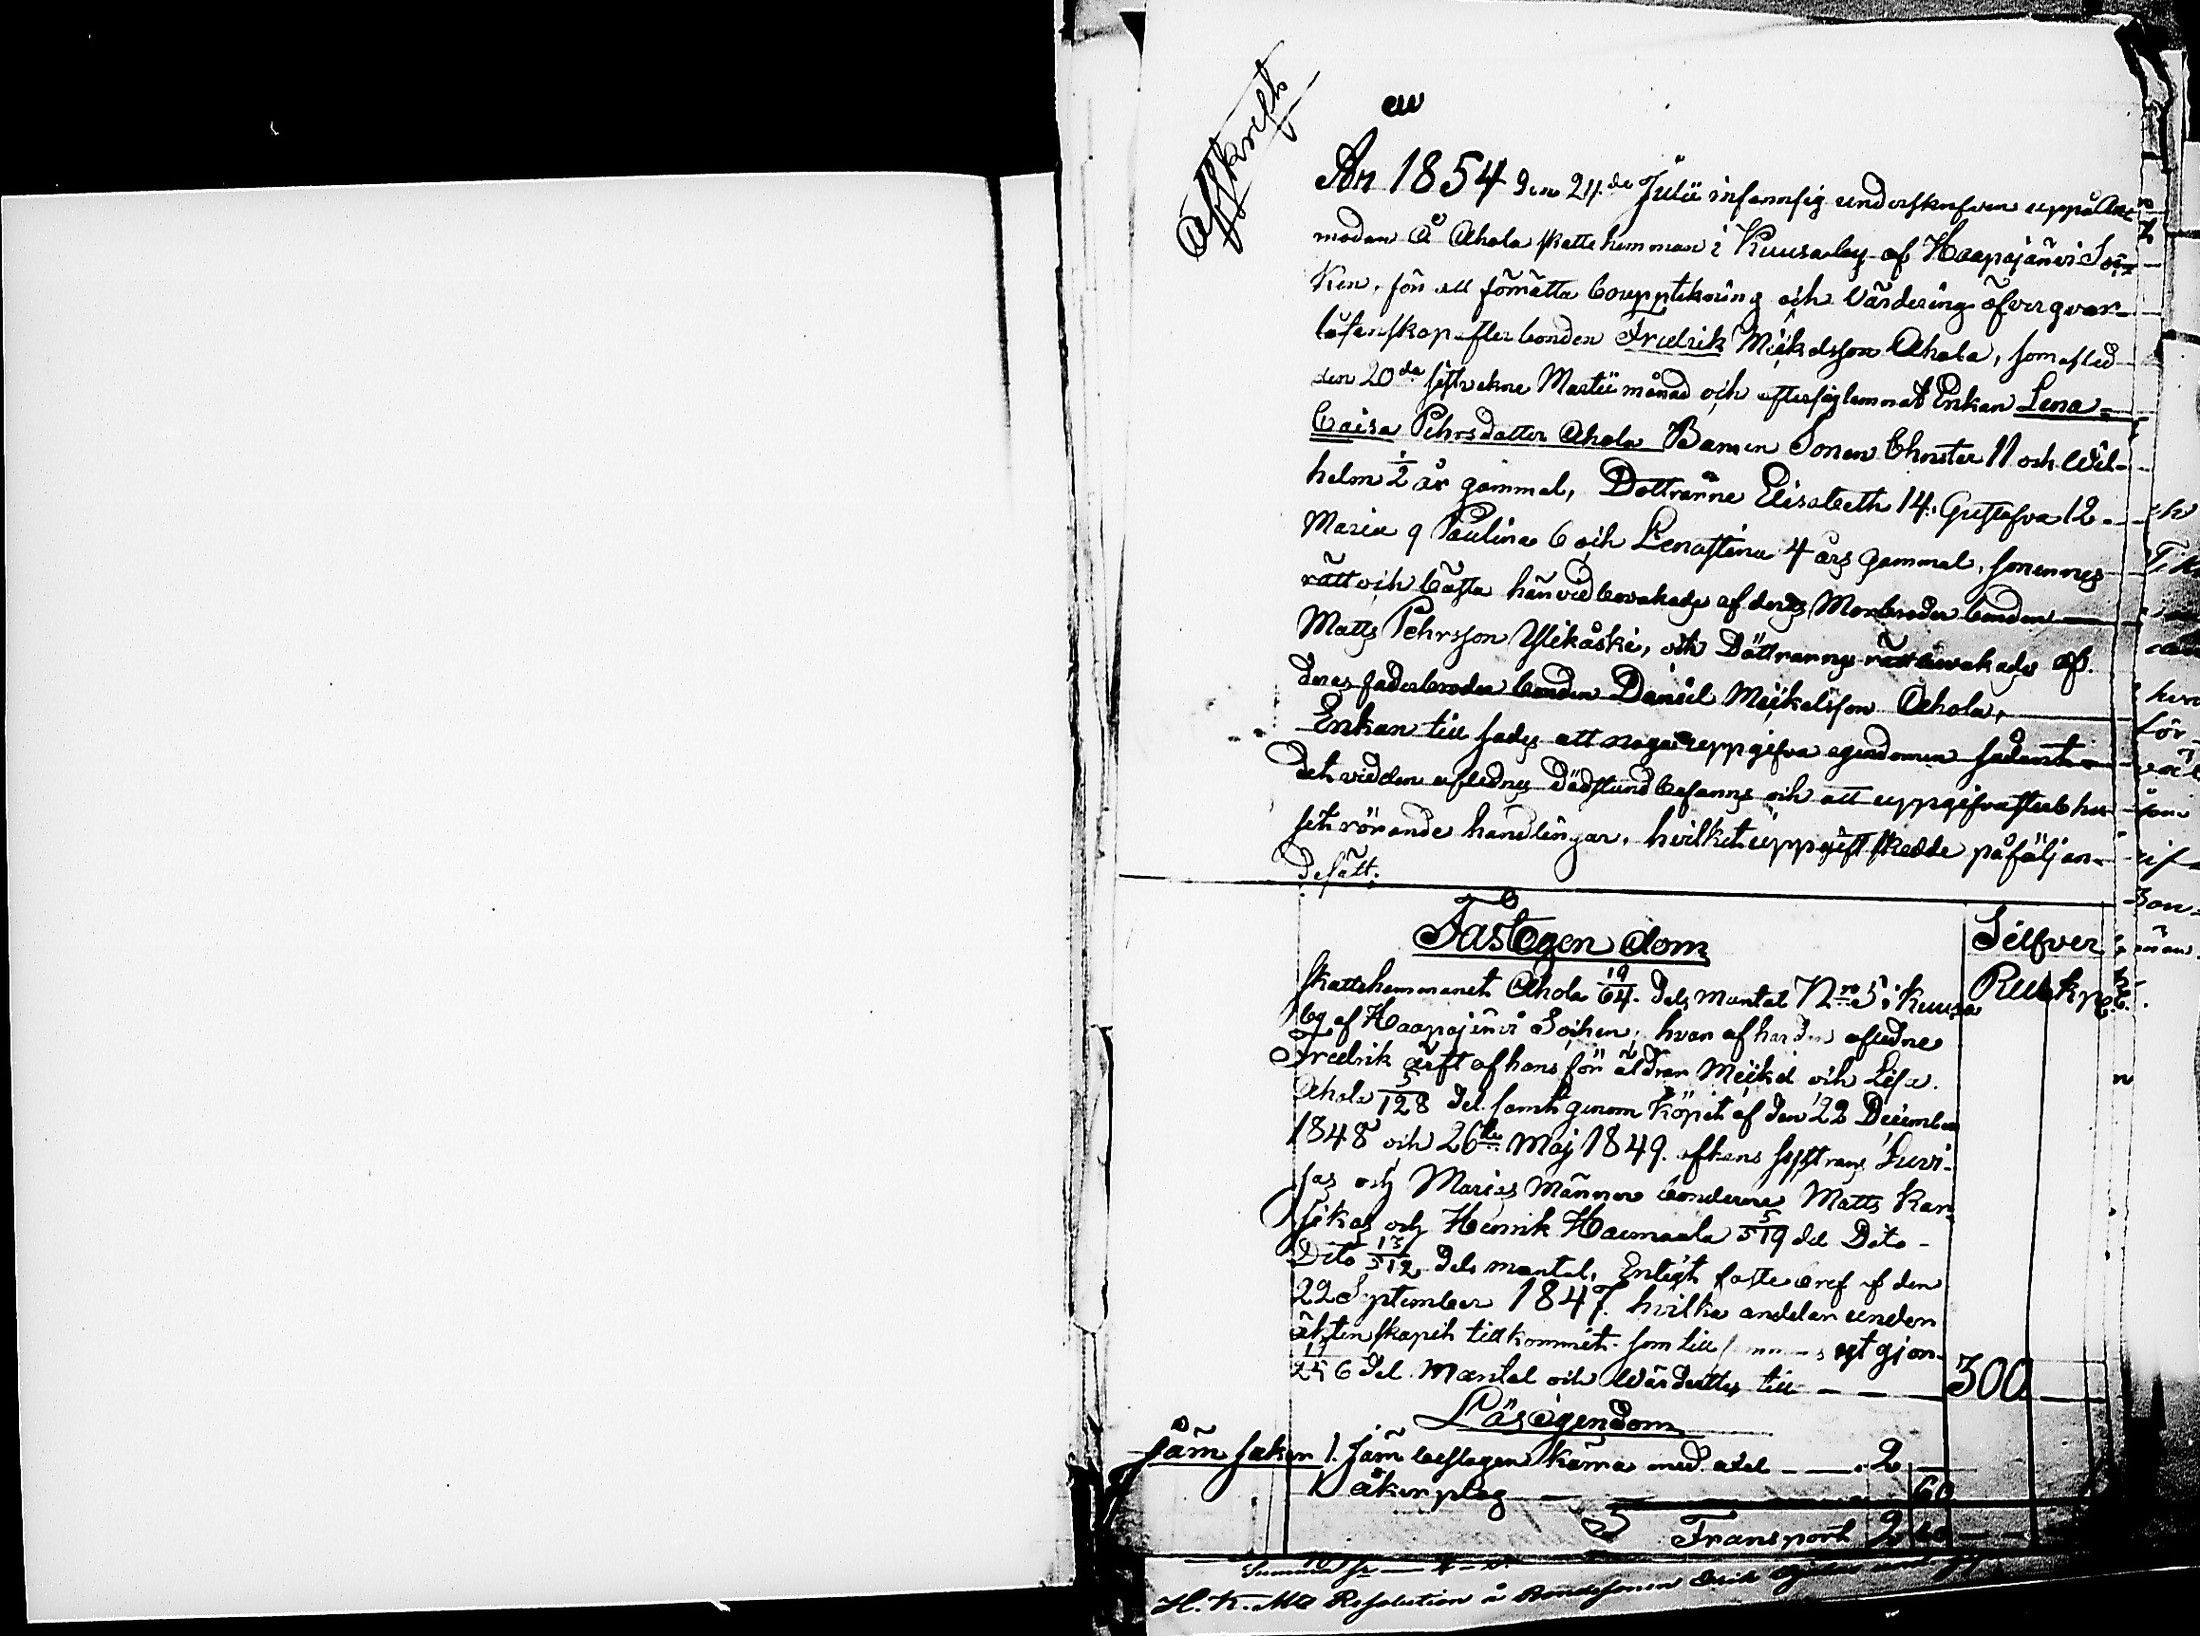 Afskrift
År 1854 den 24.de Julii infann sig underskrifven uppå An-
modan å Ahola skatte hemman i Kuusa by af Haapajärvi Soc-
ken, för att förrätta bouppteckning och värdering öfver qvar-
låtenskap efter bonden Fredrik Mickelsson Ahola, som afled
den 20de sistvekne Martii månad och efter sig lemnat Enkan Lena
Caisa Pehrsdotter Ahola Barnen Sonen Christer 11 och Wil-
helm 1/2 år gammal, Dottrarne Elisabeth 14. Gustafva 12
Maria 9 Paulina 6 och Lenastina 4 års gammal, sonernes
rätt och bästa härvid bevakades af deras Morbroder bonden
Matts Pehrsson Ylikåski, och Döttrarnes rätt bevakades af
deras faderbroder bonden Daniel Mickelsson Ahola,
Enkan till sades att noga uppgifva egendomen sådant
det vid den aflednes Dödstund befanns och att uppgifva sterbhu-
set rörande handlingar, hvilket uppgift skedde på följan-
de sätt:
Fast Egendom
Silfver
Rub kp
Skattehemmanet Ahola 19/64. dels mantal No 5 i Kuusa
by af Haapajärvi Socken, hvar af har den aflidne
Fredrik ärft af hans föräldrar Mickel och Lisa
Ahola 5/128 del samt genom köpet af den 22 December
1848 och 26te Maj 1849. af hans systrars Luvi-
sas och Marias Männer bönderne Matts Kar-
sikas och Henrik Haemaala 5/519 del Dito
Dito 13/512 dels mantal, Enligt faste bref af den
22 September 1847. hvilka andelar under
äktenskapet tillkommit. som till gjor
256 del Mantal och Värderttes till 300
Lös egendom
Järn saker 1. Järn beslagen Kärra med axel 2
1 åker plog 60
Transport 2 60
Summa
H. K. Mts Resolution å Bondesonen